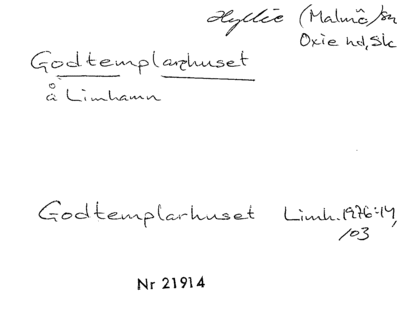 Hyllie (Malmö/sn
Oxie hd, Sk
Godtemplarhuset
å Limhamn
Godtemplarhuset Limh. 1976:14,
103
Nr 21914